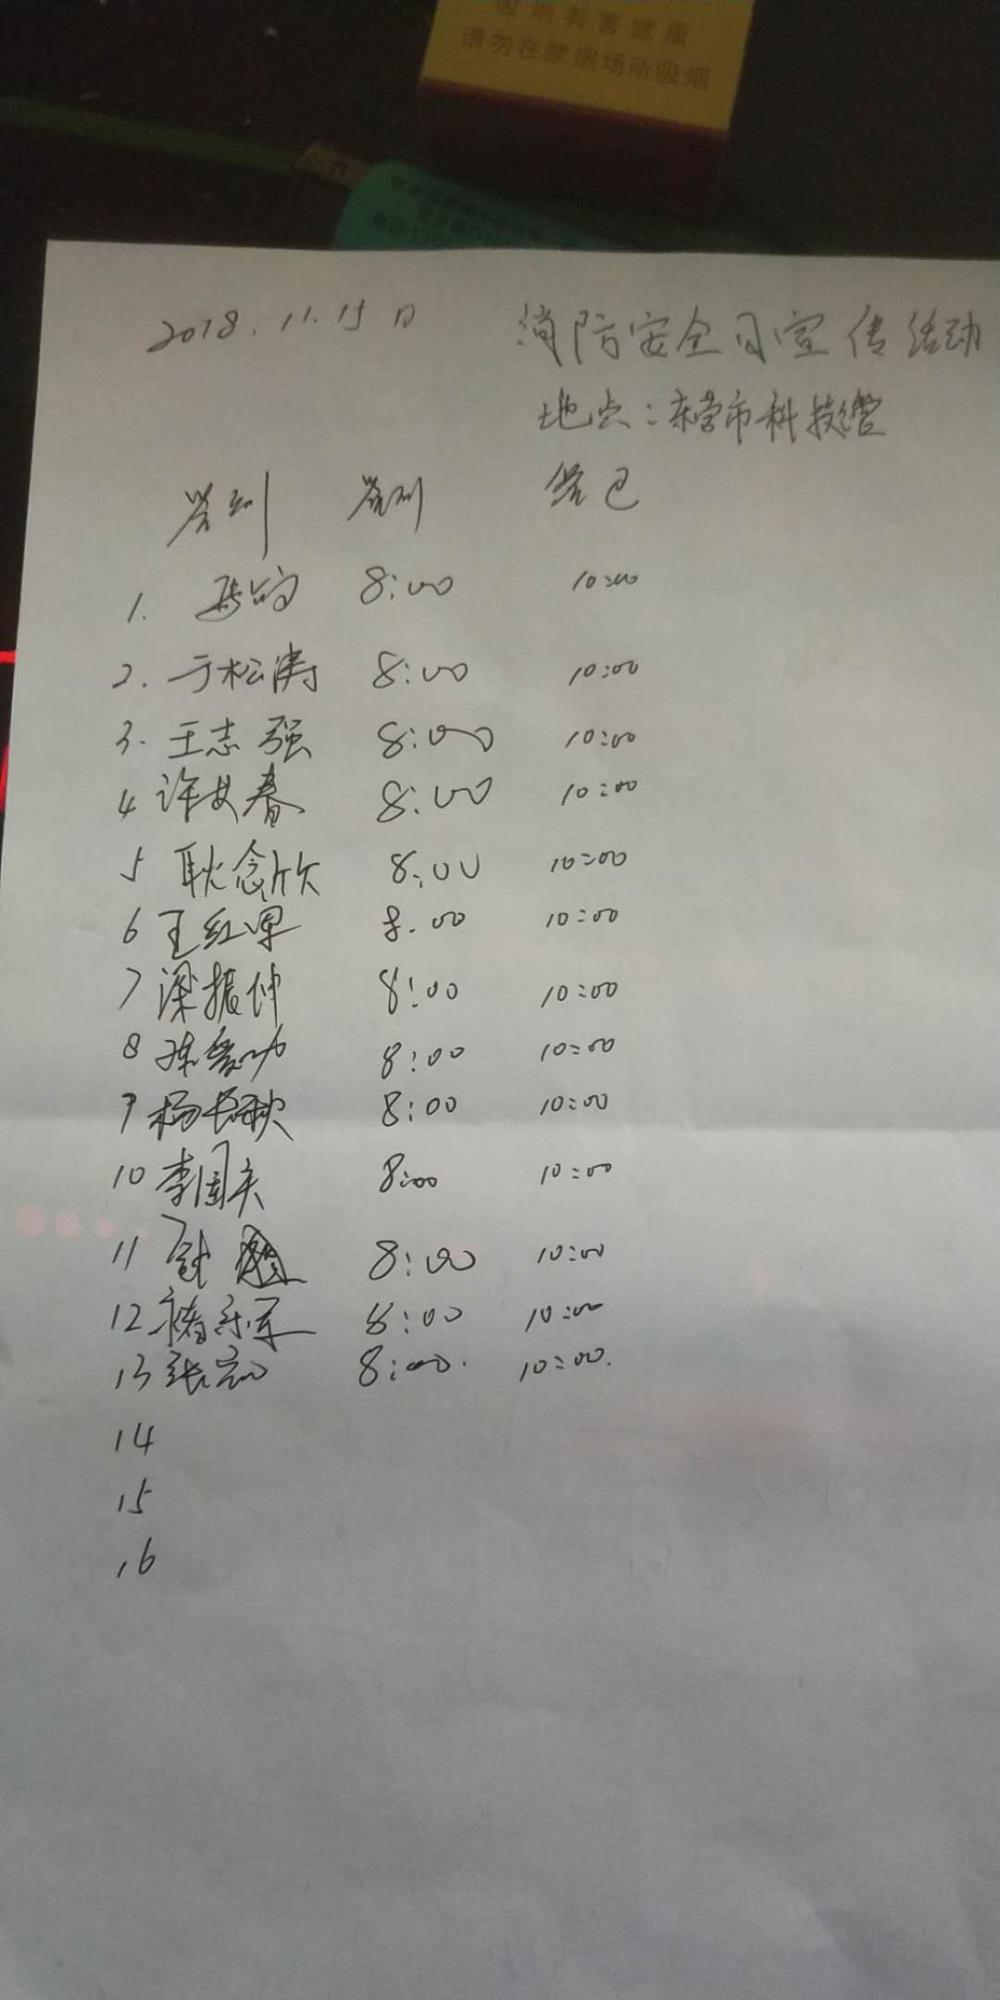 吸烟有害健康
请勿在禁烟场所吸烟
2018.11.15日 消防安全日宣传活动
地点：东营市科技馆
签到 签到 签退
1. 8:00 10:00
2. 于松涛 8:00 10:00
3. 王志强 8:00 10:00
4 许女春 8:00 10:00
5 耿念欣 8:00 10:00
6 王红军 8:00 10:00
7 梁振仲 8:00 10:00
8 8:00 10:00
9 杨长秋 8:00 10:00
10 李国夫 8:00 10:00
11 8:00 10:00
12 褚乐军 8:00 10:00
13 张宏 8:00. 10:00.
14
15
16